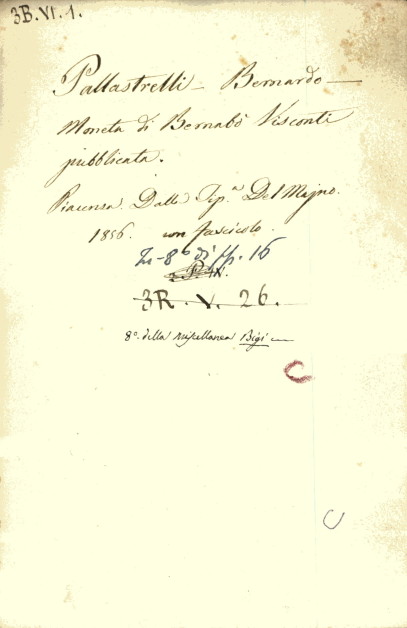 3B.VI.1.
Pallastrelli - Bernardo -
Moneta di Bernabò Visconti
pubblicata.
Piacenza. Dalla Tip.ª Del Majno.
1856. un fascicolo.
In-8º di pp. 16
3R. V. 26.
8º. della miscellanea Bigi
C
C